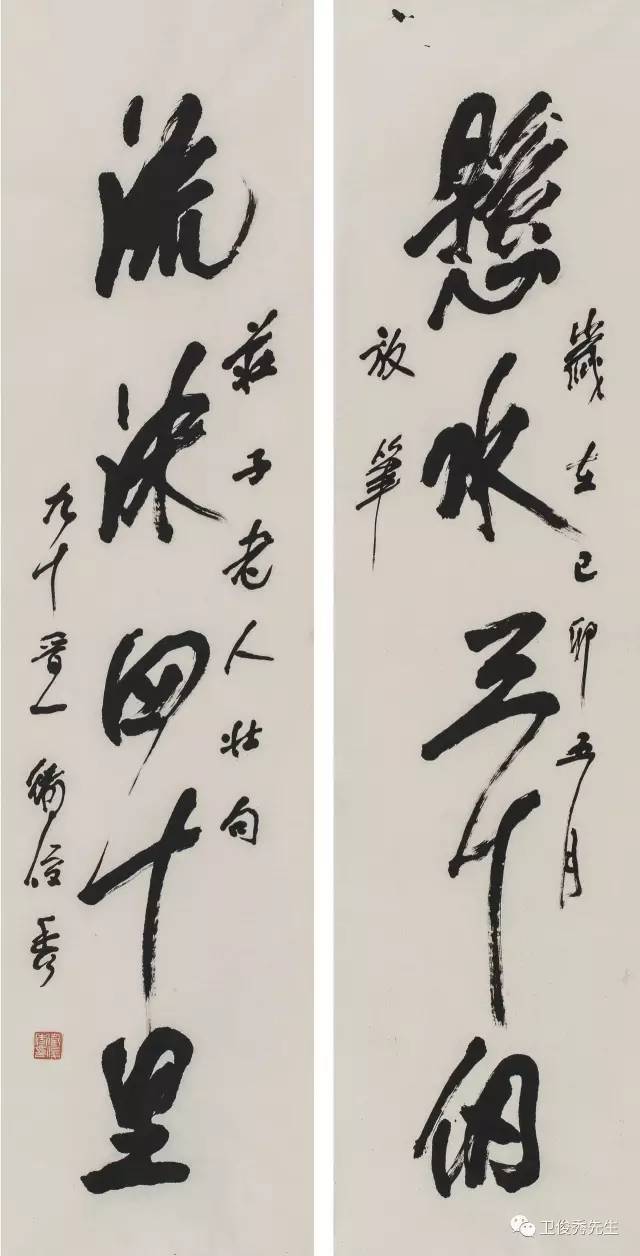 歲在己卯五月
懸水三十仞
放筆
莊子老人壯句
流沫四十里
九十晋一衛俊秀
卫俊秀先生